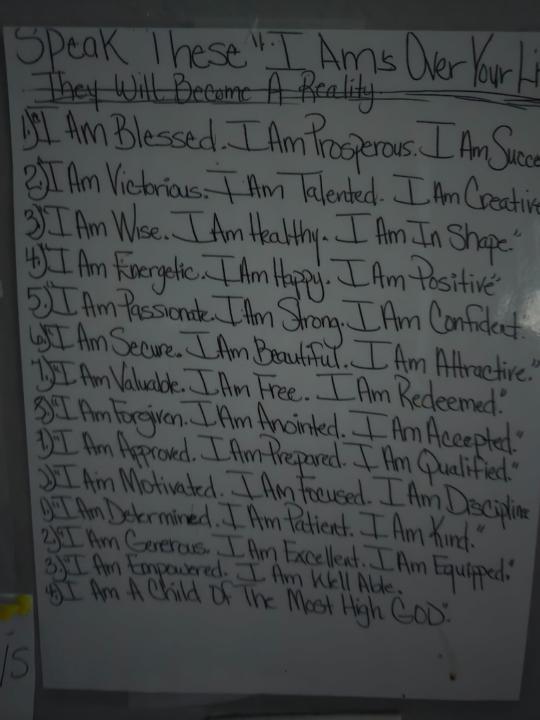 Speak These "I Ams Over Your Li
They Will Become A Reality
1) "I Am Blessed. I Am Prosperous. I Am Succe
2) "I Am Victorious. I Am Talented. I Am Creative
3) "I Am Wise. I Am Healthy. I Am In Shape."
4) "I Am Energetic. I Am Happy. I Am Positive"
5) "I Am Passionate. I Am Strong. I Am Confident.
6) "I Am Secure. I Am Beautiful. I Am Attractive."
7) "I Am Valuable. I Am Free. I Am Redeemed."
8) "I Am Forgiven. I Am Anointed. I Am Accepted."
9) "I Am Approved. I Am Prepared. I Am Qualified."
0) "I Am Motivated. I Am Focused. I Am Discipline
1) "I Am Determined. I Am Patient. I Am Kind."
2) "I Am Generous. I Am Excellent. I Am Equipped."
3) "I Am Empowered. I Am Well Able.
4) "I Am A Child Of The Most High GOD".
is